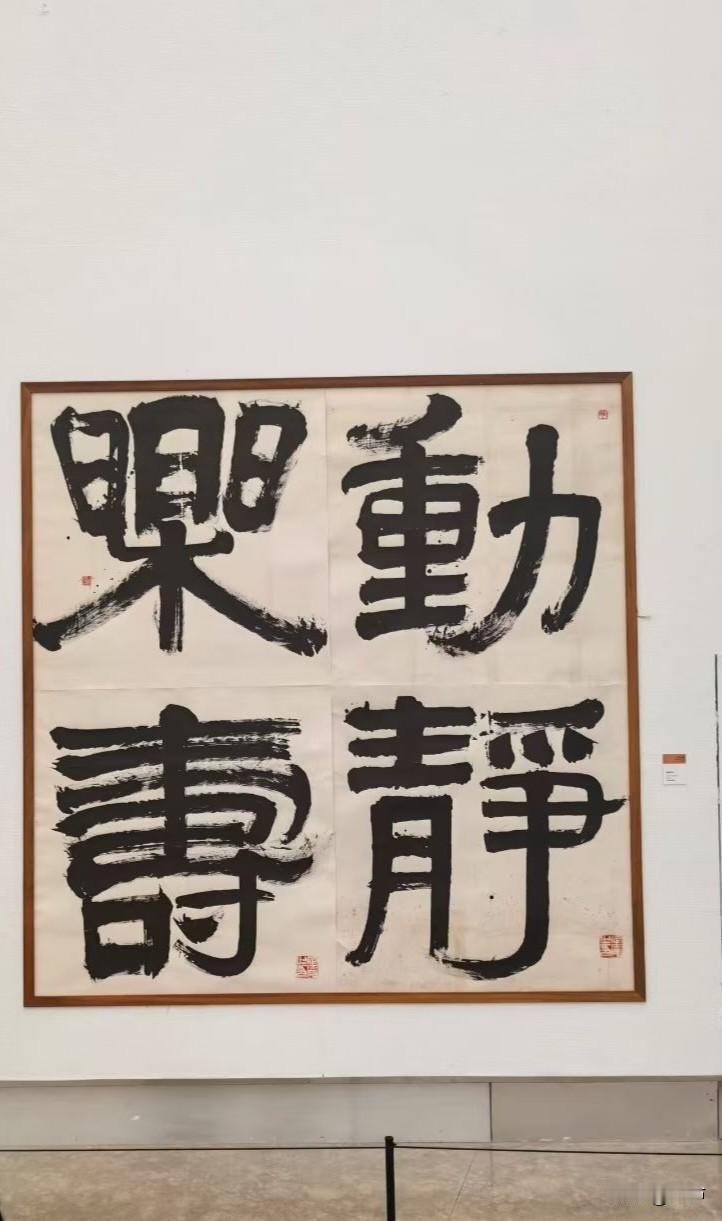 動靜
樂壽